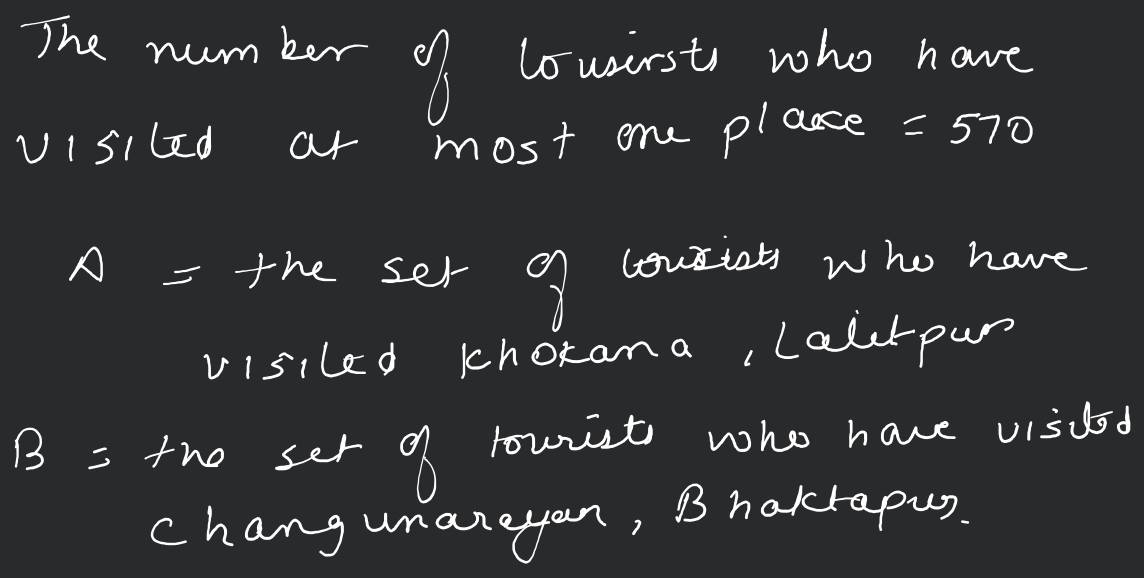 The number of tousirsts who have
visited at most one place = 570
A = the set of tourists who have
visited Khokana, Lalitpur
B = the set of tourists who have visited
Changunarayan, Bhaktapur.